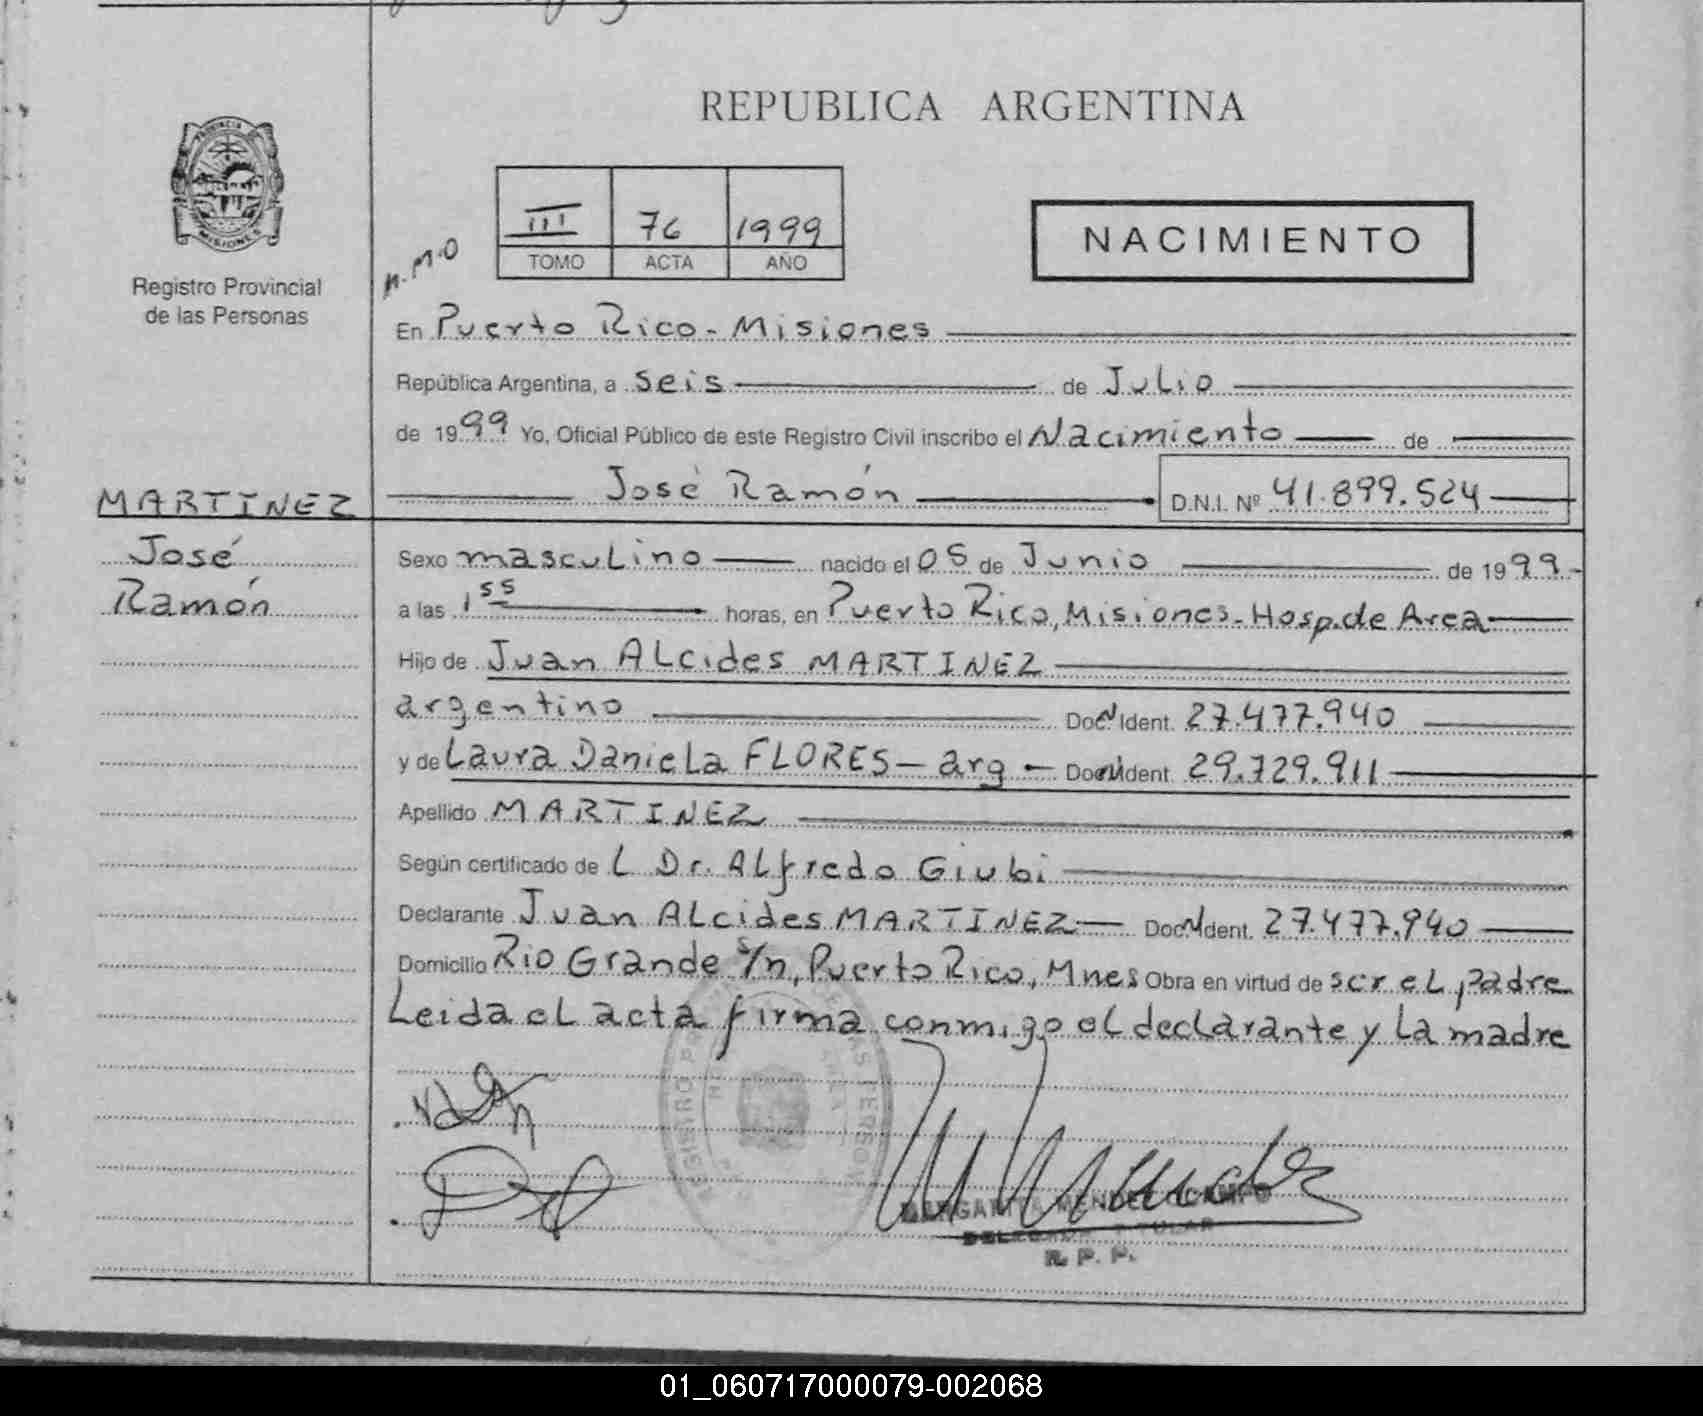 REPUBLICA ARGENTINA
PROVINCIA DE
MISIONES
Registro Provincial
de las Personas
III 76 1999
TOMO ACTA AÑO
NACIMIENTO
N.M.O
En Puerto Rico - Misiones
República Argentina, a seis de Julio
de 1999 Yo, Oficial Público de este Registro Civil inscribo el Nacimiento de
José Ramón D.N.I. Nº 41.899.524
MARTINEZ
José
Ramón
Sexo masculino nacido el 05 de Junio de 1999.-
a las 1 55 horas, en Puerto Rico, Misiones - Hosp. de Area
Hijo de Juan Alcides MARTINEZ
argentino Doc. Ident. 27.477.940
y de Laura Daniela FLORES - arg - Doc. Ident. 29.729.911
Apellido MARTINEZ
Según certificado de L Dr. Alfredo Giubi
Declarante Juan Alcides MARTINEZ Doc. Ident. 27.477.940
Domicilio Rio Grande s/n, Puerto Rico, Mnes Obra en virtud de ser el padre
Leida el acta firma conmigo el declarante y la madre
MARGARITA MENDEZ CAMPO
DELEGADA TITULAR
R. P. P.
01_060717000079-002068